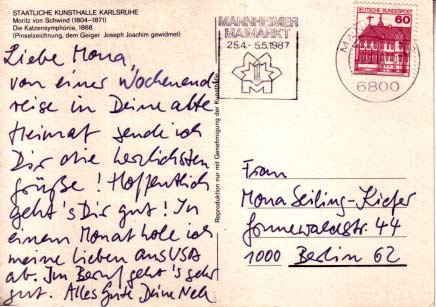 STAATLICHE KUNSTHALLE KARLSRUHE
Moritz von Schwind (1804–1871)
Die Katzensymphonie, 1868
(Pinselzeichnung, dem Geiger Joseph Joachim gewidmet)
Liebe Mona,
von einer Wochenend
reise in Deine alte
Heimat sende ich
Dir die herzlichsten
Grüße! Hoffentlich
geht's Dir gut! In
einem Monat hole ich
meine Lieben aus USA
ab. Im Beruf geht's sehr
gut. Alles Gute Deine
Reproduktion nur mit Genehmigung der Kunsthalle
MANNHEIMER
MAIMARKT
25.4.- 5.5.1987
M
DEUTSCHE BUNDESPOST
60
6800
Frau
Mona Seiling-Kiefer
Gunnewaldstr. 44
1000 Berlin 62